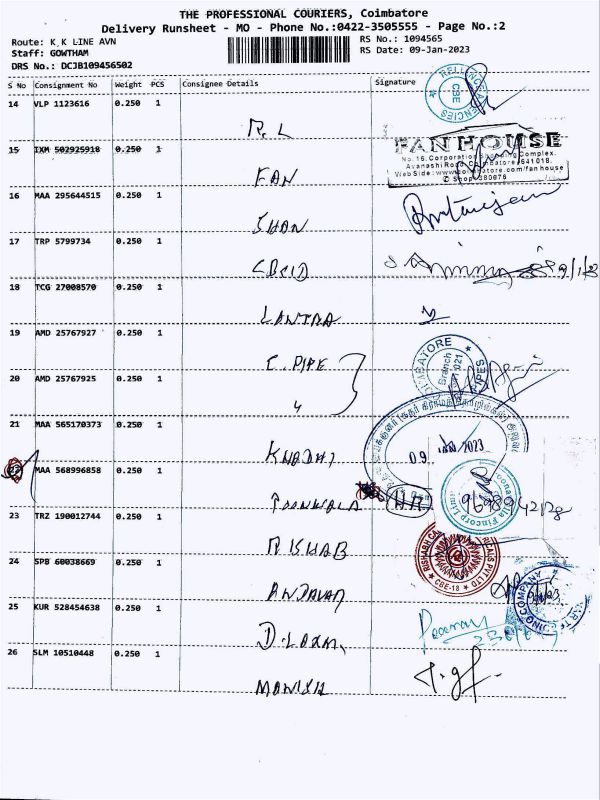 THE PROFESSIONAL COURIERS, Coimbatore
Delivery Runsheet - MO - Phone No.:0422-3505555 - Page No.:2
Route: K K LINE AVN
RS No.: 1094565
Staff: GOWTHAM
RS Date: 09-Jan-2023
DRS No.: DCJB109456502
S No Consignment No Weight PCS Consignee Details Signature
14 VLP 1123616 0.250 1
R. L
RELIENCE AGENCIES CBE
15 IXM 502925918 0.250 1
FAN
FAN HOUSE
No. 16, Corporation Complex,
Avanashi Road, Coimbatore 641018.
Web Side: www.coimbatore.com/fanhouse
16 MAA 295644515 0.250 1
SHAN
17 TRP 5799734 0.250 1
CBCID
9/1/23
18 TCG 27008570 0.250 1
LANTAA
19 AMD 25767927 0.250 1
C. PIPE
COIMBATORE Branch PIPES
20 AMD 25767925 0.250 1
21 MAA 565170373 0.250 1
KHADHI
09 2023
22 MAA 568996858 0.250 1
POONWALA
Poonawalla Fincorp Limited
23 TRZ 190012744 0.250 1
RISHAB
RISHABH PVT LTD CBE-18
24 SPB 60038669 0.250 1
ANDAVAR
25 KUR 528454638 0.250 1
D. Laxmi
26 SLM 10510448 0.250 1
MANISH